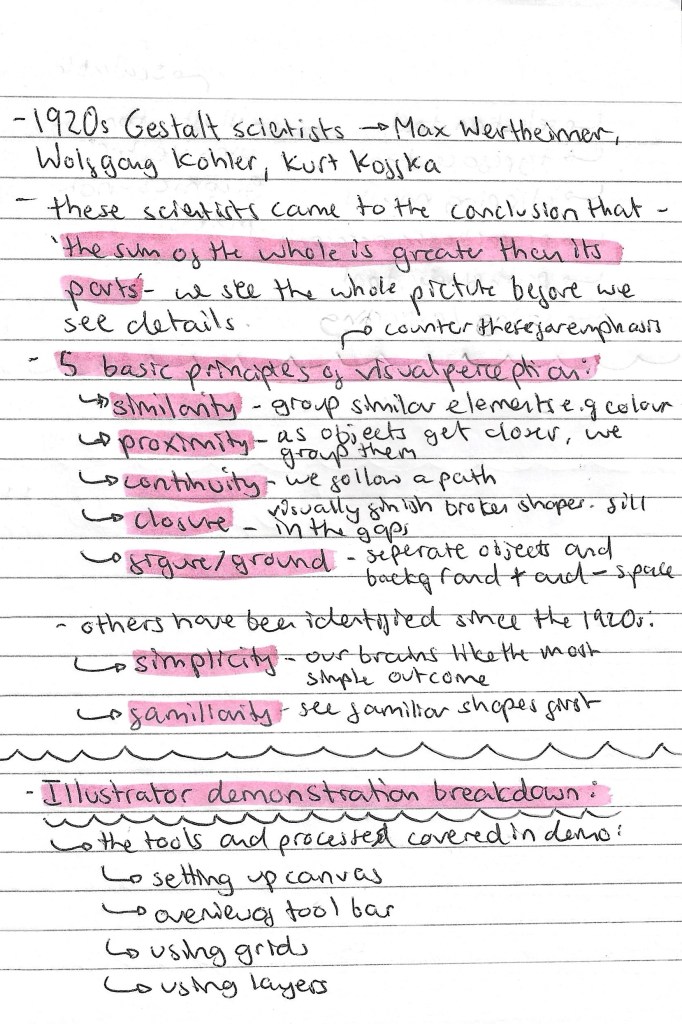 - 1920s Gestalt scientists → Max Wertheimer,
Wolfgang Kohler, Kurt Koffka
- these scientists came to the conclusion that -
'the sum of the whole is greater then its
parts' - we see the whole picture before we
see details.
↱ counter these for emphasis
- 5 basic principles of visual perception:
↳ similarity - group similar elements e.g colour
↳ proximity - as objects get closer, we
group them
↳ continuity - we follow a path
↳ closure - visually finish broken shapes. fill
in the gaps
↳ figure/ground - seperate objects and
background + and - space
- others have been identified since the 1920s:
↳ simplicity - our brains like the most
simple outcome
↳ familiarity - see familiar shapes first
- Illustrator demonstration breakdown:
↳ the tools and processed covered in demo:
↳ setting up canvas
↳ overview of tool bar
↳ using grids
↳ using layers